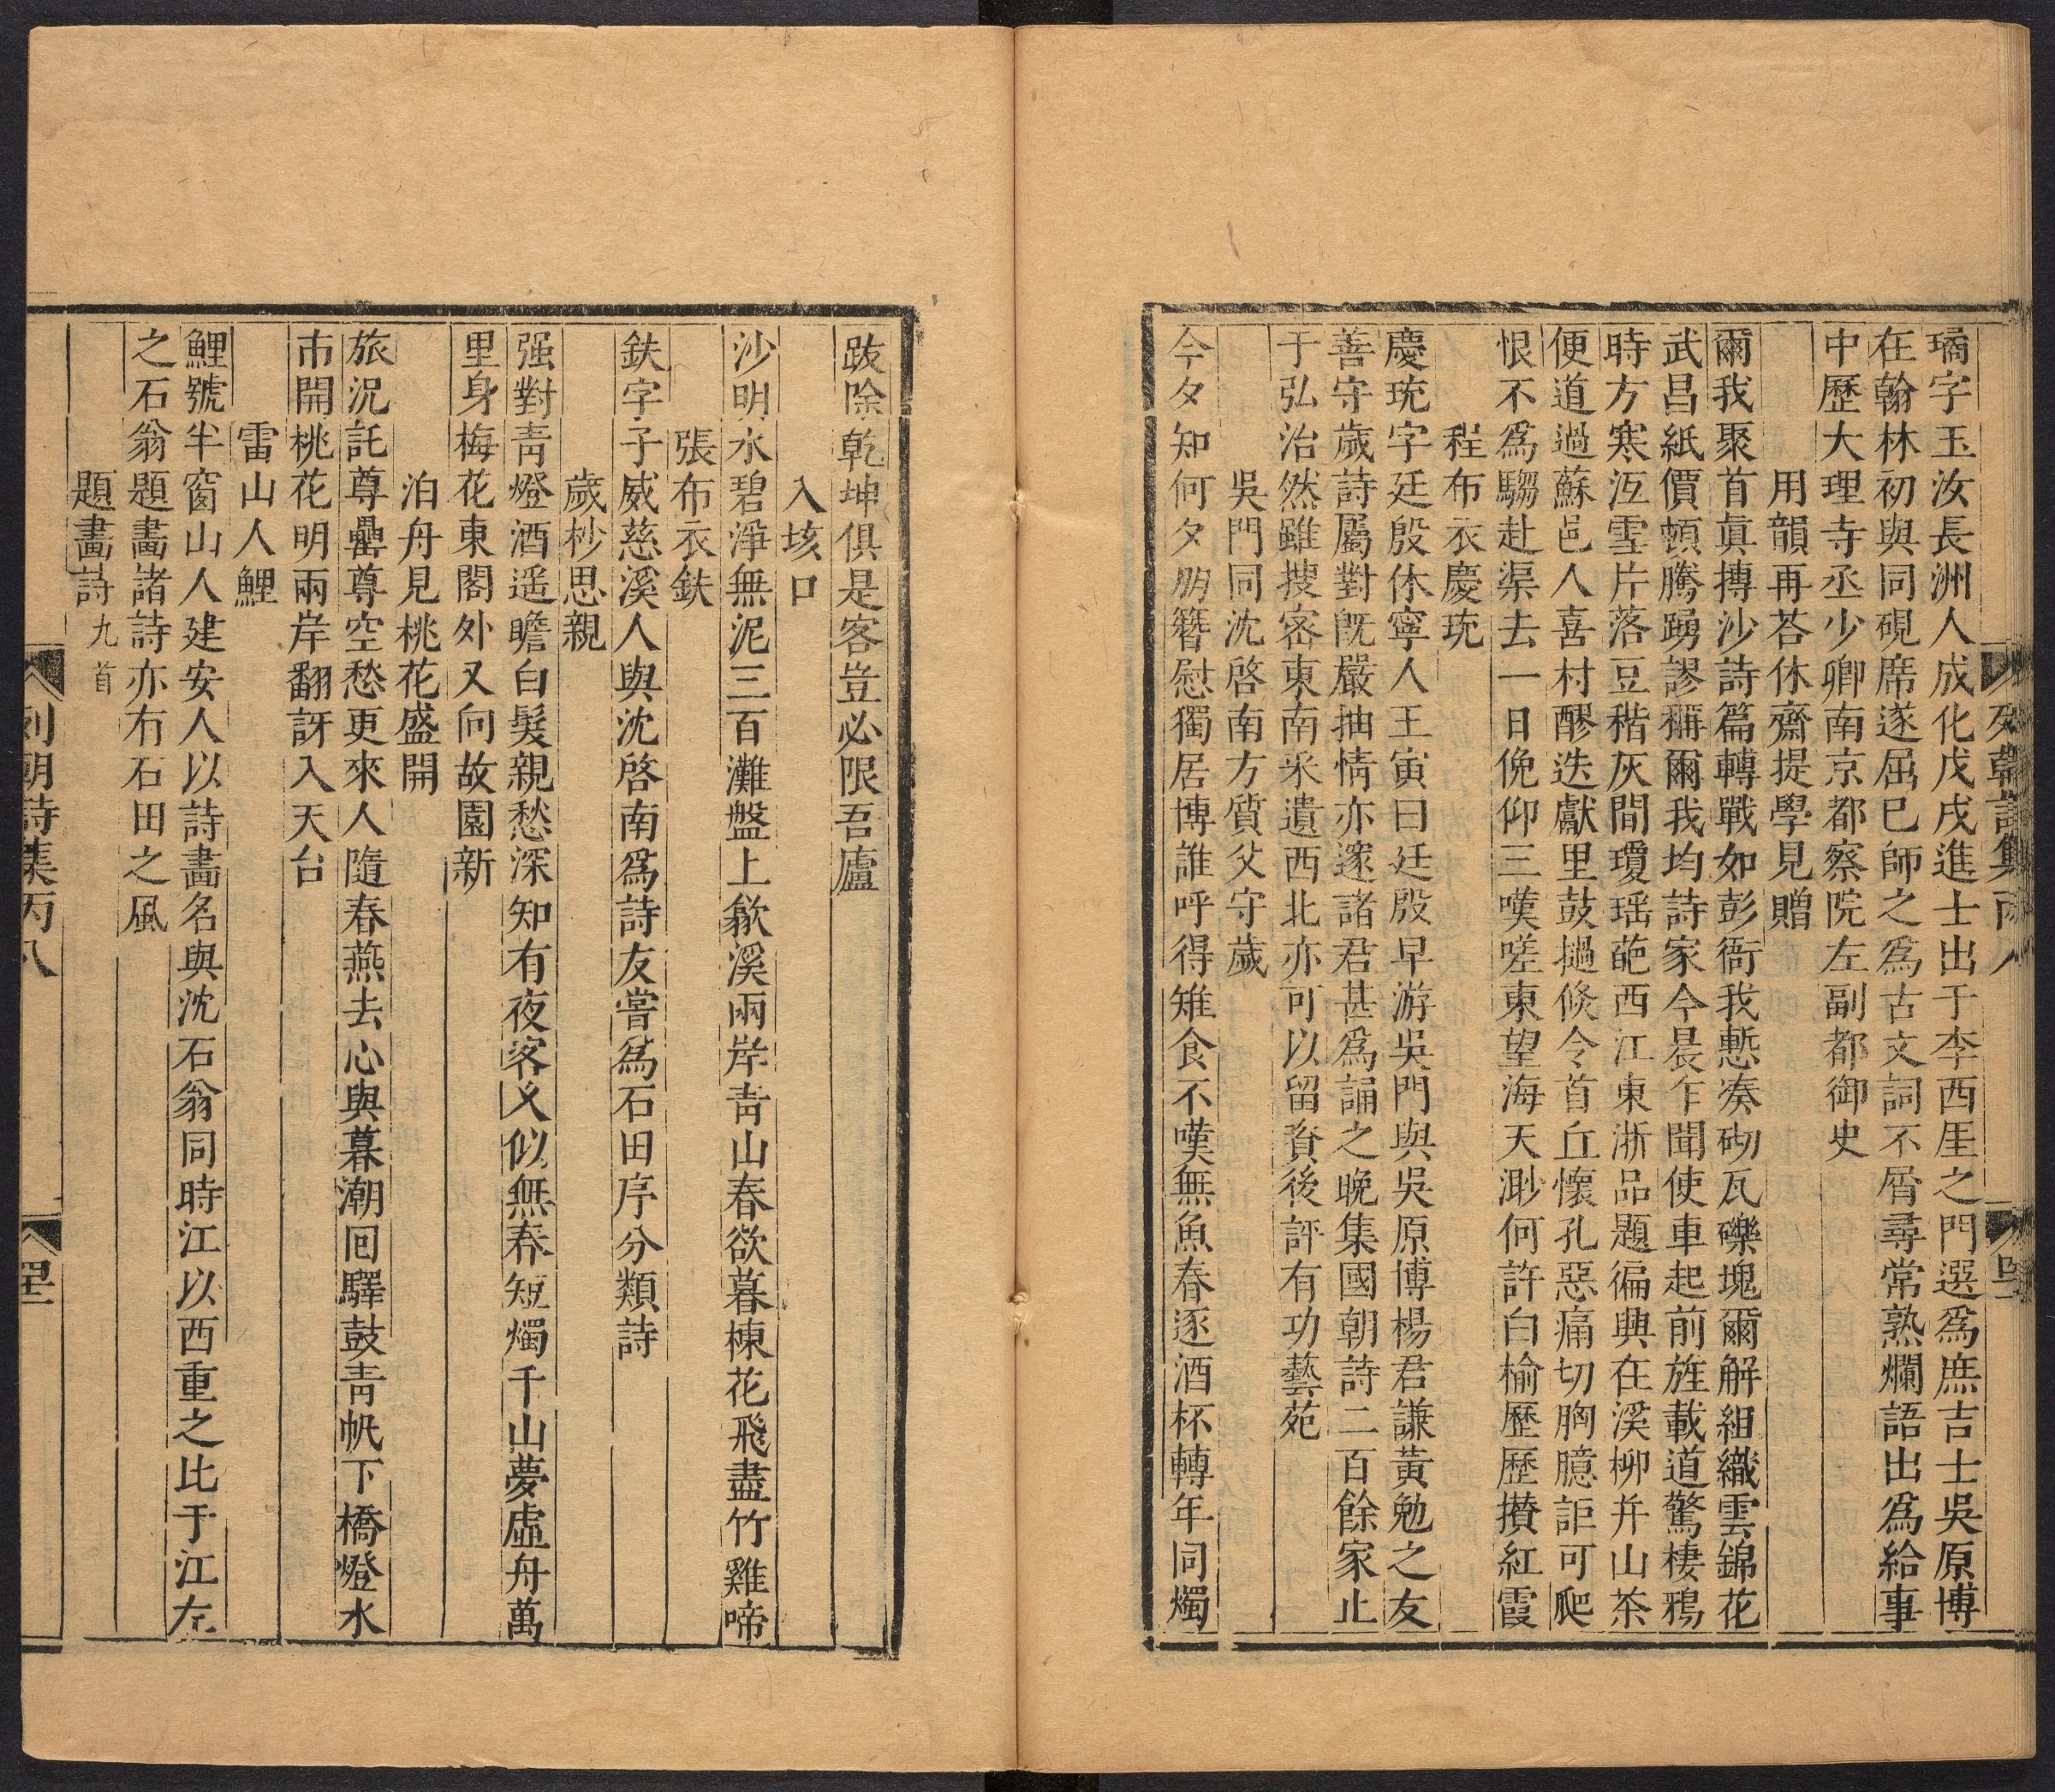 列朝詩集丙八
璚字玉汝長洲人成化戊戌進士出于李西厓之門選爲庶吉士吳原博
在翰林初與同硯席遂屈已師之爲古文詞不屑尋常熟爛語出爲給事
中歷大理寺丞少卿南京都察院左副都御史
用韻再荅休齋提學見贈
爾我聚首眞摶沙詩篇轉戰如彭衙我慙湊砌瓦礫塊爾解組織雲錦花
武昌紙價頓騰踴謬稱爾我均詩家今晨乍聞使車起前旌載道驚棲鴉
時方寒沍雪片落豆稭灰間瓊瑤葩西江東浙品題徧興在溪柳幷山茶
便道過蘇邑人喜村醪迭獻里鼓撾倏令首丘懷孔惡痛切胸臆詎可爬
恨不爲騶赴渠去一日俛仰三嘆嗟東望海天渺何許白榆歷歷攢紅霞
程布衣慶玧
慶玧字廷殷休寧人王寅曰廷殷早游吳門與吳原博楊君謙黃勉之友
善守歲詩屬對旣嚴抽情亦邃諸君甚爲誦之晚集國朝詩二百餘家止
于弘治然雖搜宻東南采遺西北亦可以留資後評有功藝苑
吳門同沈啓南方質父守歲
今夕知何夕朋簪慰獨居博誰呼得雉食不嘆無魚春逐酒杯轉年同燭
跋除乾坤俱是客豈必限吾廬
入垓口
沙明水碧淨無泥三百灘盤上歙溪兩岸青山春欲暮楝花飛盡竹雞啼
張布衣鈇
鈇字子威慈溪人與沈啓南爲詩友嘗爲石田序分類詩
歲杪思親
强對青燈酒遥瞻白髮親愁深知有夜客乂似無春短燭千山夢虛舟萬
里身梅花東閣外又向故園新
泊舟見桃花盛開
旅況託尊罍尊空愁更來人隨春燕去心與暮潮回驛鼓青帆下橋燈水
市開桃花明兩岸翻訝入天台
雷山人鯉
鯉號半窗山人建安人以詩畵名與沈石翁同時江以西重之比于江左
之石翁題畵諸詩亦有石田之風
題畵詩九首
列朝詩集丙八